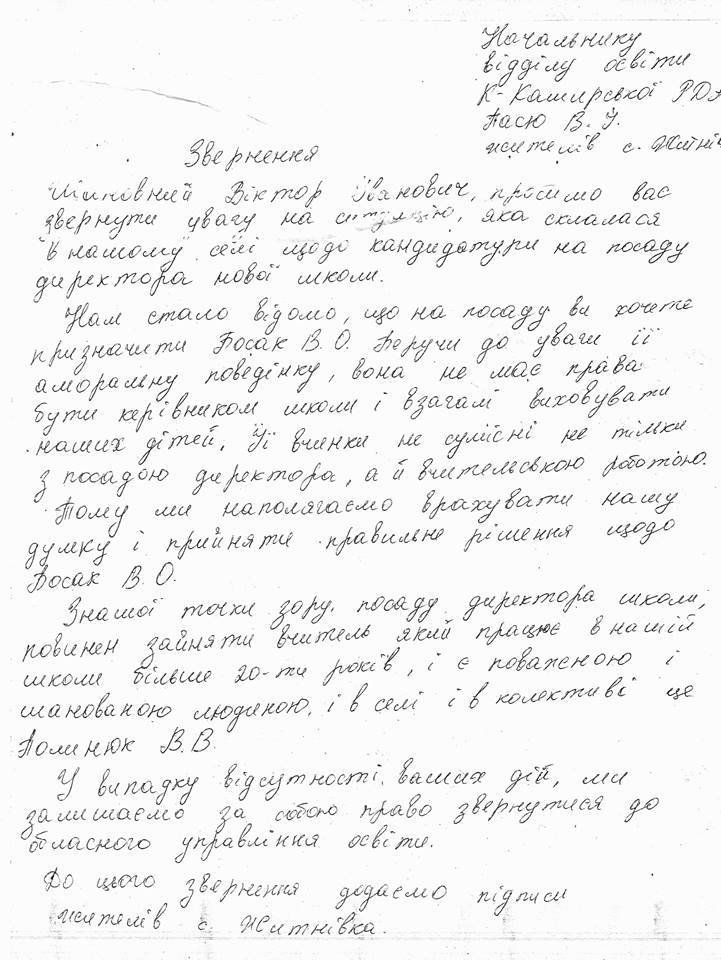 Начальнику
відділу освіти
К-Каширської РДА
Пасю В. І.
жителів с. Житнів
Звернення
Шановний Віктор Іванович, просимо вас
звернути увагу на ситуацію, яка склалася
в нашому селі щодо кандидатури на посаду
директора нової школи.
Нам стало відомо, що на посаду ви хочете
призначити Босак В. О. Беручи до уваги її
аморальну поведінку, вона не має права
бути керівником школи і взагалі виховувати
наших дітей. Її вчинки не сумісні не тільки
з посадою директора, а й вчительською роботою.
Тому ми наполягаємо врахувати нашу
думку і прийняти правильне рішення щодо
Босак В. О.
Знашої точки зору, посаду директора школи,
повинен зайняти вчитель який працює в нашій
школи більше 20-ти років, і є поважною і
шанованою людиною, і в селі і в колективі це
Полинюк В. В.
У випадку відсутності ваших дій, ми
залишаємо за собою право звернутися до
обласного управління освіти.
До цього звернення додаємо підписи
жителів с. Житнівка.